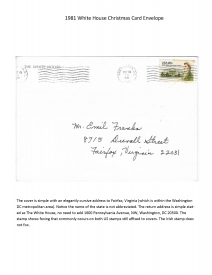 1981 White House Christmas Card Envelope
THE WHITE HOUSE
Mr. Emil Franks
8715 Duvall Street
Fairfax, Virginia 22031
The cover is simple with an elegantly cursive address to Fairfax, Virginia (which is within the Washington
DC metropolitan area). Notice the name of the state is not abbreviated. The return address is simple stat-
ed as The White House, no need to add 1600 Pennsylvania Avenue, NW, Washington, DC 20500. The
stamp shows foxing that commonly occurs on both US stamps still affixed to covers. The Irish stamp does
not fox.